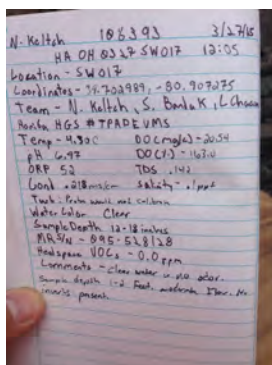 N. Keltch 108393 3/27/15
HA OH 0327 SW017 12:05
Location - SW017
Coordinates - 39.702989, -80.907275
Team - N. Keltch, S. Bandak, L Chacon
Horiba HGS # TPADEVMS
Temp - 4.93C DO (mg/L) - 20.54
pH 6.97 DO (%) - 163.0
ORP 52 TDS .142
Cond .218 ms/cm Salinity - .1 ppt
Turb: Probe would not calibrate
Water Color Clear
Sample Depth 12-18 inches
MR S/N - 095-528128
Headspace VOCs - 0.0 ppm
Comments - Clear water w. no odor.
Sample depth 1-2 Feet. moderate Flow. No
inverts present.